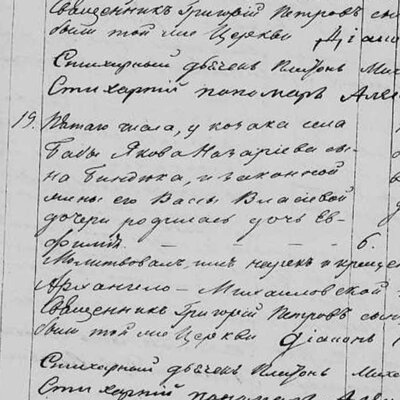 Священникъ Григорій Петровъ сын
былъ той же Церкви Діако
Стихарный дьячекъ Платонъ Миха
Стихарній пономаръ Алек
19. Пятаго числа, у козака села
Бабы Якова Назаріева сы-
на Биндюка, и законной
жены его Васы Власіевой
дочери родилась дочь Ев-
фимія. — — — — 6.
Молитвовалъ, имя нарекъ и креще
Архангело-Михайловской
Священникъ Григорій Петровъ сын
былъ той же Церкви Діаконъ
Стихарный дьячекъ Платонъ Миха
Стихарній пономаръ Але